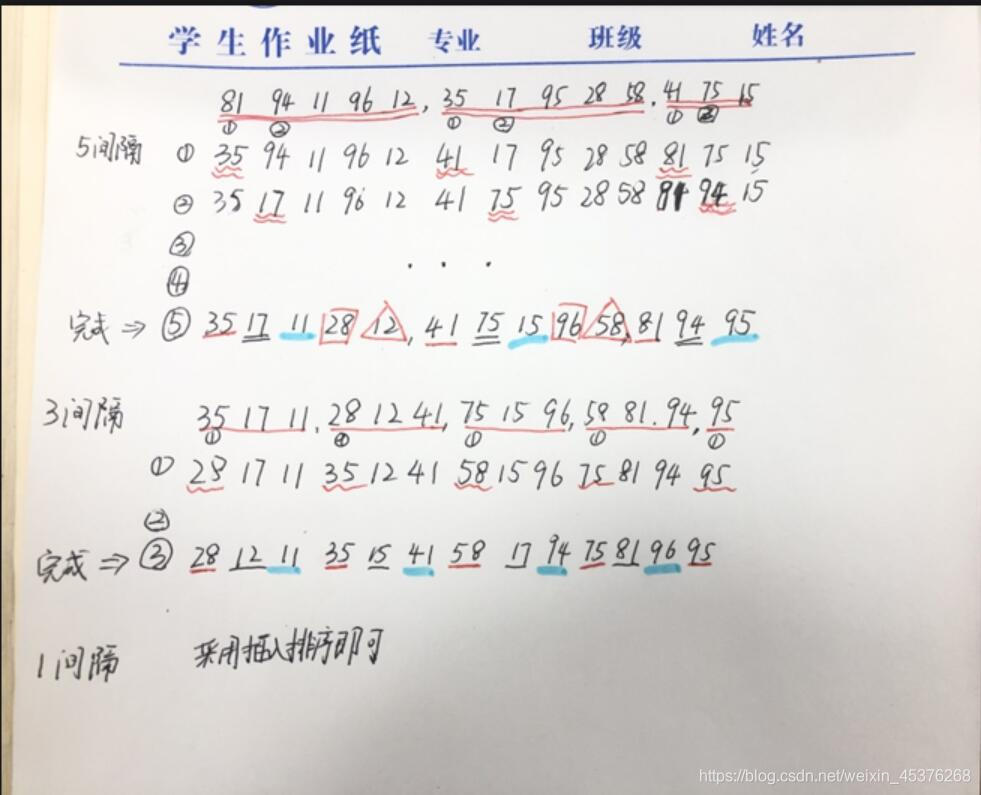 学生作业纸 专业 班级 姓名
81 94 11 96 12, 35 17 95 28 58, 41 75 15
① ② ① ② ① ②
5间隔 ① 35 94 11 96 12 41 17 95 28 58 81 75 15
② 35 17 11 96 12 41 75 95 28 58 81 94 15
③
④ . . .
完成 ⇒ ⑤ 35 17 11 28 12, 41 75 15 96 58, 81 94 95
3间隔 35 17 11, 28 12 41, 75 15 96, 58 81. 94, 95
① ① ① ① ①
① 28 17 11 35 12 41 58 15 96 75 81 94 95
②
完成 ⇒ ③ 28 12 11 35 15 41 58 17 94 75 81 96 95
1间隔 采用插入排序即可
https://blog.csdn.net/weixin_45376268